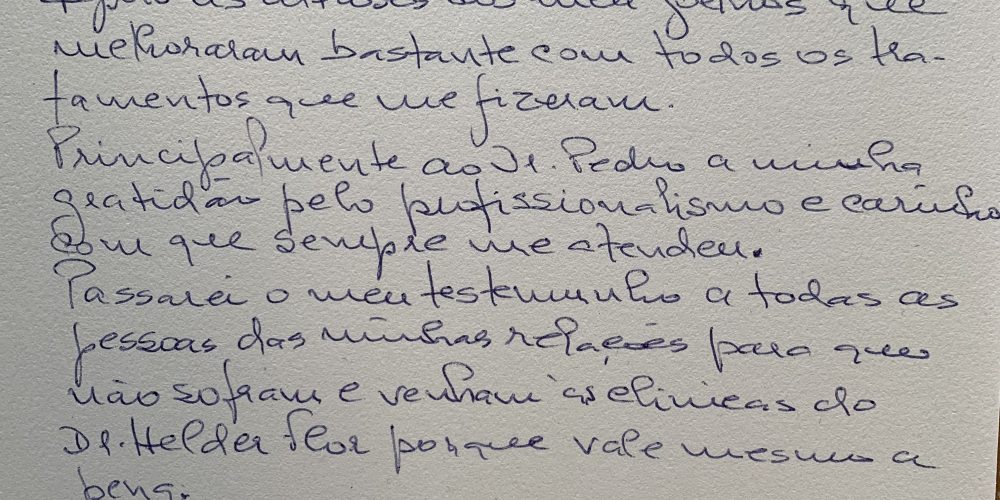 as artroses dos meus joelhos que
melhoraram bastante com todos os tra-
tamentos que me fizeram.
Principalmente ao Dr. Pedro a minha
gratidão pelo profissionalismo e carinho
com que sempre me atendeu.
Passarei o meu testemunho a todas as
pessoas das minhas relações para que
não sofram e venham às clinicas do
Dr. Helder Flor porque vale mesmo a
pena.